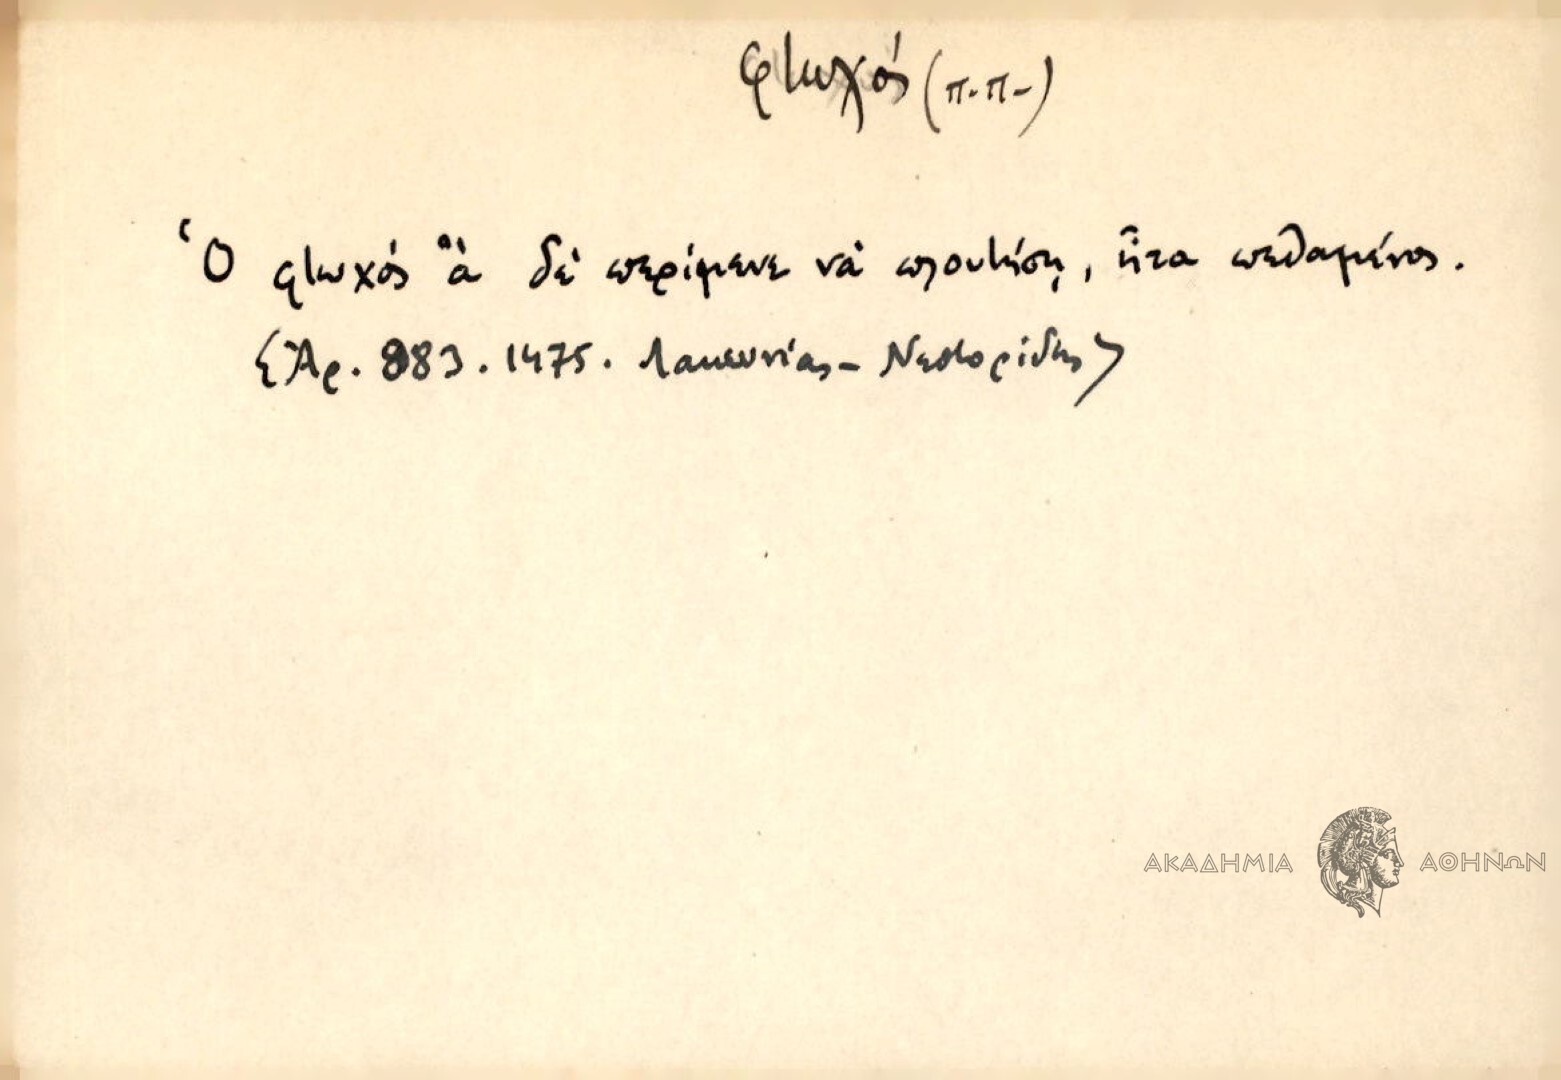 φτωχός (π.π-)
Ὁ φτωχός ἂ δέ περίμενε νά πλουτήση, ἦτα πεθαμένος.
{Ἀρ. 883. 1475. Λακωνίας - Νεστορίδης}
ΑΚΑΔΗΜΙΑ ΑΘΗΝΩΝ